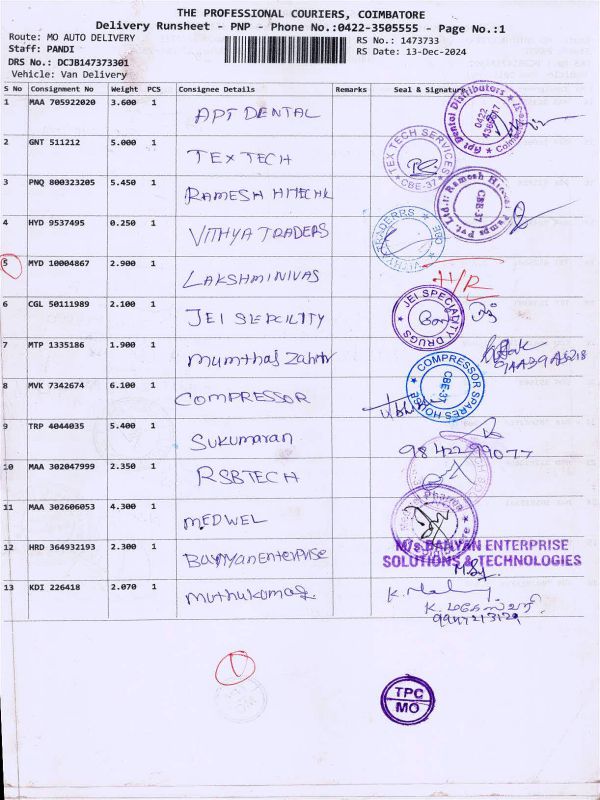 THE PROFESSIONAL COURIERS, COIMBATORE
Delivery Runsheet - PNP - Phone No.:0422-3505555 - Page No.:1
Route: MO AUTO DELIVERY
RS No.: 1473733
Staff: PANDI
RS Date: 13-Dec-2024
DRS No.: DCJB147373301
Vehicle: Van Delivery
S No Consignment No Weight PCS Consignee Details Remarks Seal & Signature
1 MAA 705922020 3.600 1 APT DENTAL
Apt Dental Distributors
0422
2 GNT 511212 5.000 1 TEX TECH
TEX TECH SERVICES
CBE-37
3 PNQ 800323205 5.450 1 RAMESH HITECHK
Pumps Pvt. Ltd.
CBE-37
4 HYD 9537495 0.250 1 VITHYA TRADERS
5 MYD 10004867 2.900 1 LAKSHMINIVAS
H/R
6 CGL 50111989 2.100 1 JEI SEPCILITY
JEI SPECIALITY DRUGS
7 MTP 1335186 1.900 1 mumthaj Zahir
8 MVK 7342674 6.100 1 COMPRESSOR
COMPRESSOR SPARES HOUSE
CBE-37
9 TRP 4044035 5.400 1 Sukumaran
98422 99077
10 MAA 302047999 2.350 1 RSBTECH
11 MAA 302606053 4.300 1 MEDWEL
12 HRD 364932193 2.300 1 Banyanenterprise
M/s.BANYAN ENTERPRISE
SOLUTIONS & TECHNOLOGIES
13 KDI 226418 2.070 1 muthukumar
TPC
MO